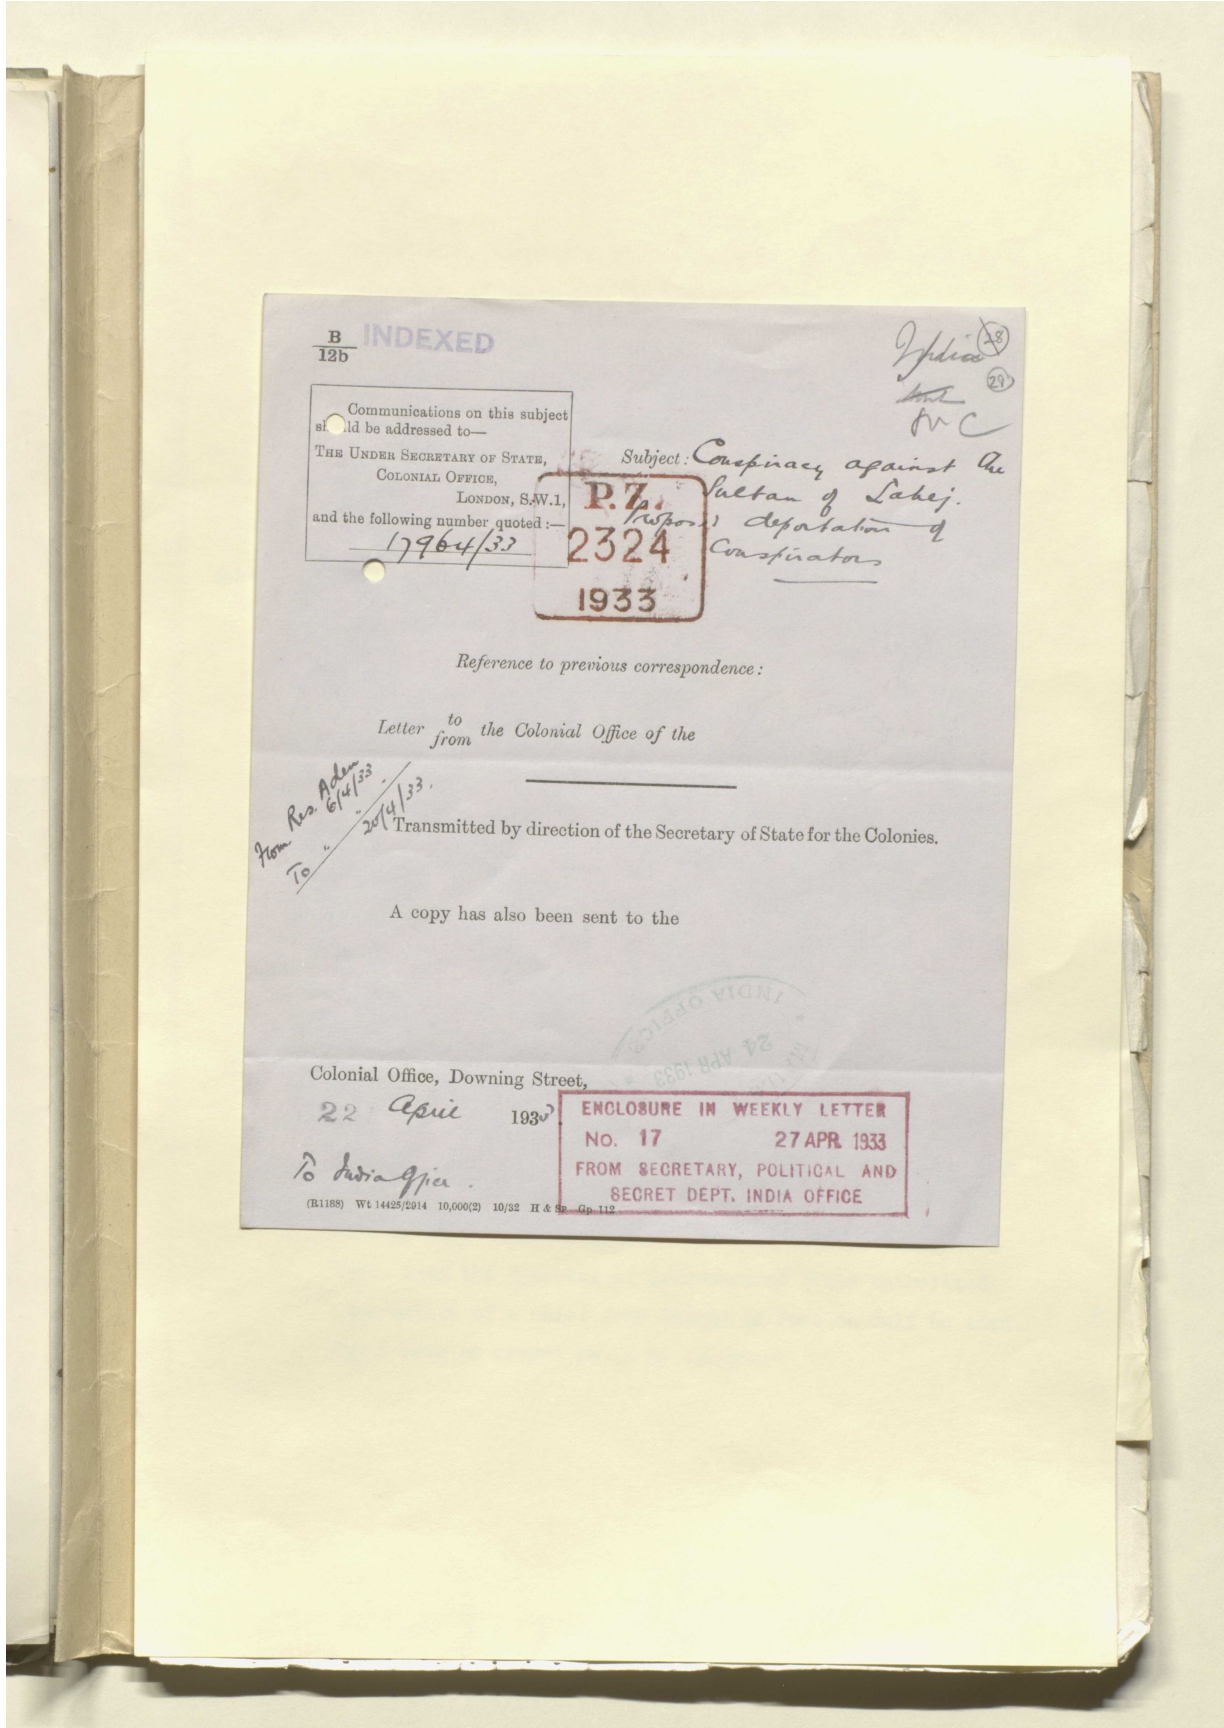 B
12b
INDEXED
India
28
29
Communications on this subject
should be addressed to—
THE UNDER SECRETARY OF STATE,
COLONIAL OFFICE,
LONDON, S.W.1,
and the following number quoted :—
17964/33
Subject: Conspiracy against the
Sultan of Lahej.
Proposed deportation of
Conspirators
P.Z.
2324
1933
Reference to previous correspondence:
Letter to
from the Colonial Office of the
From Res. Aden 6/4/33.
To " " 20/4/33.
Transmitted by direction of the Secretary of State for the Colonies.
A copy has also been sent to the
INDIA OFFICE
24 APR 1933
Colonial Office, Downing Street,
22 April 1933
ENCLOSURE IN WEEKLY LETTER
No. 17 27 APR. 1933
FROM SECRETARY, POLITICAL AND
SECRET DEPT. INDIA OFFICE
To India Office.
(R1188) Wt 14425/2914 10,000(2) 10/32 H & SP Gp 112